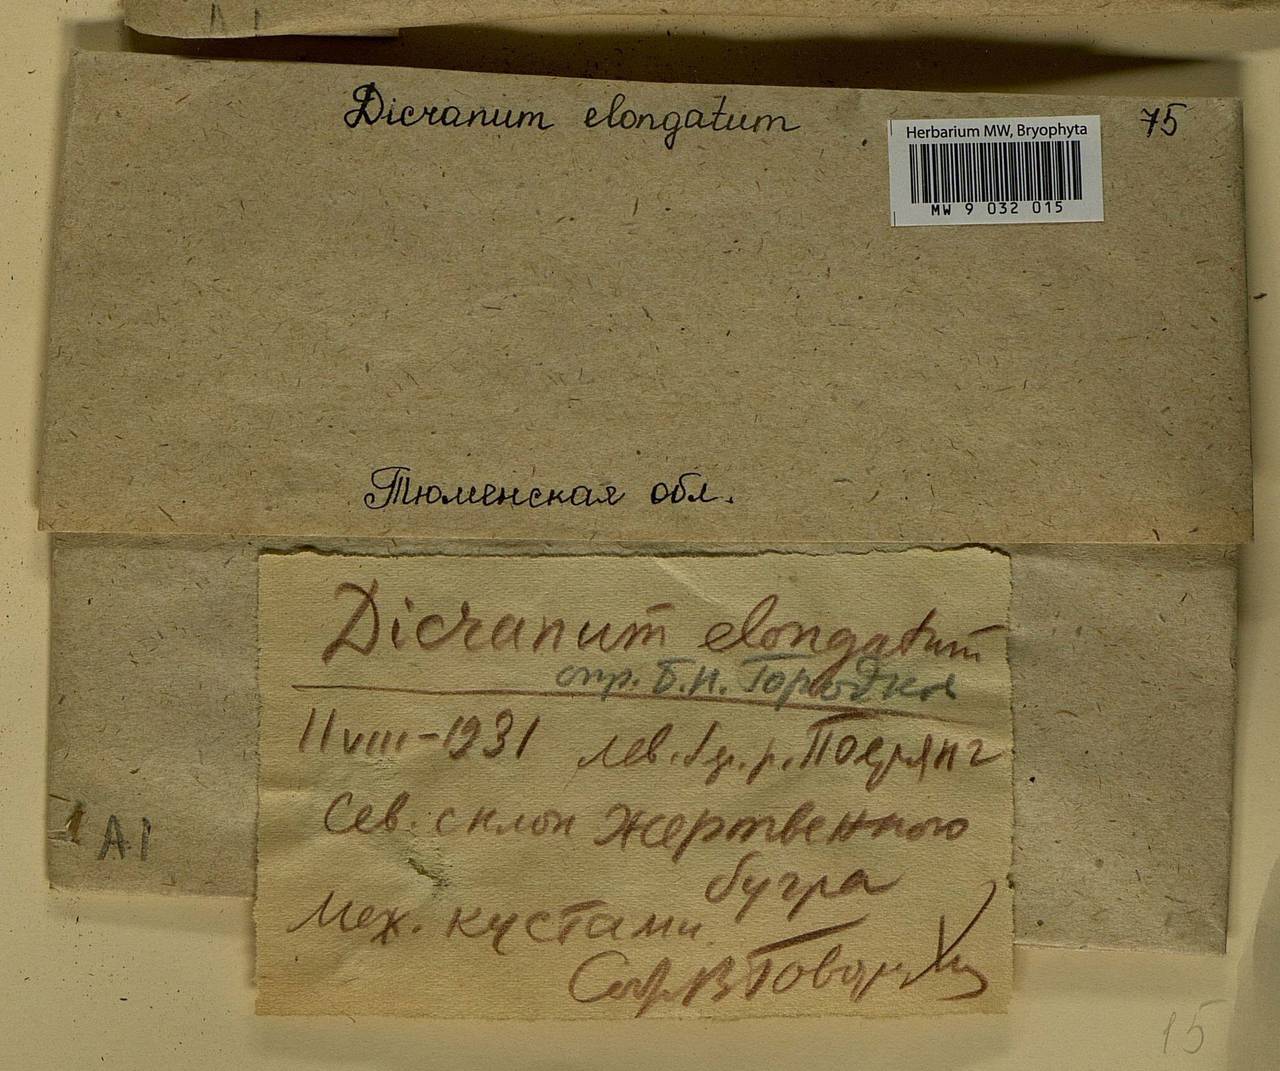 Dicranum elongatum
75
Herbarium MW, Bryophyta
MW 9 032 015
Тюменская обл.
Dicranum elongatum
опр. Б.Н. Городков
11 VIII-1931 лев. р.
Сев. склон жертвенного
бугра
Меж. кустами.
Собр. В
A1
15